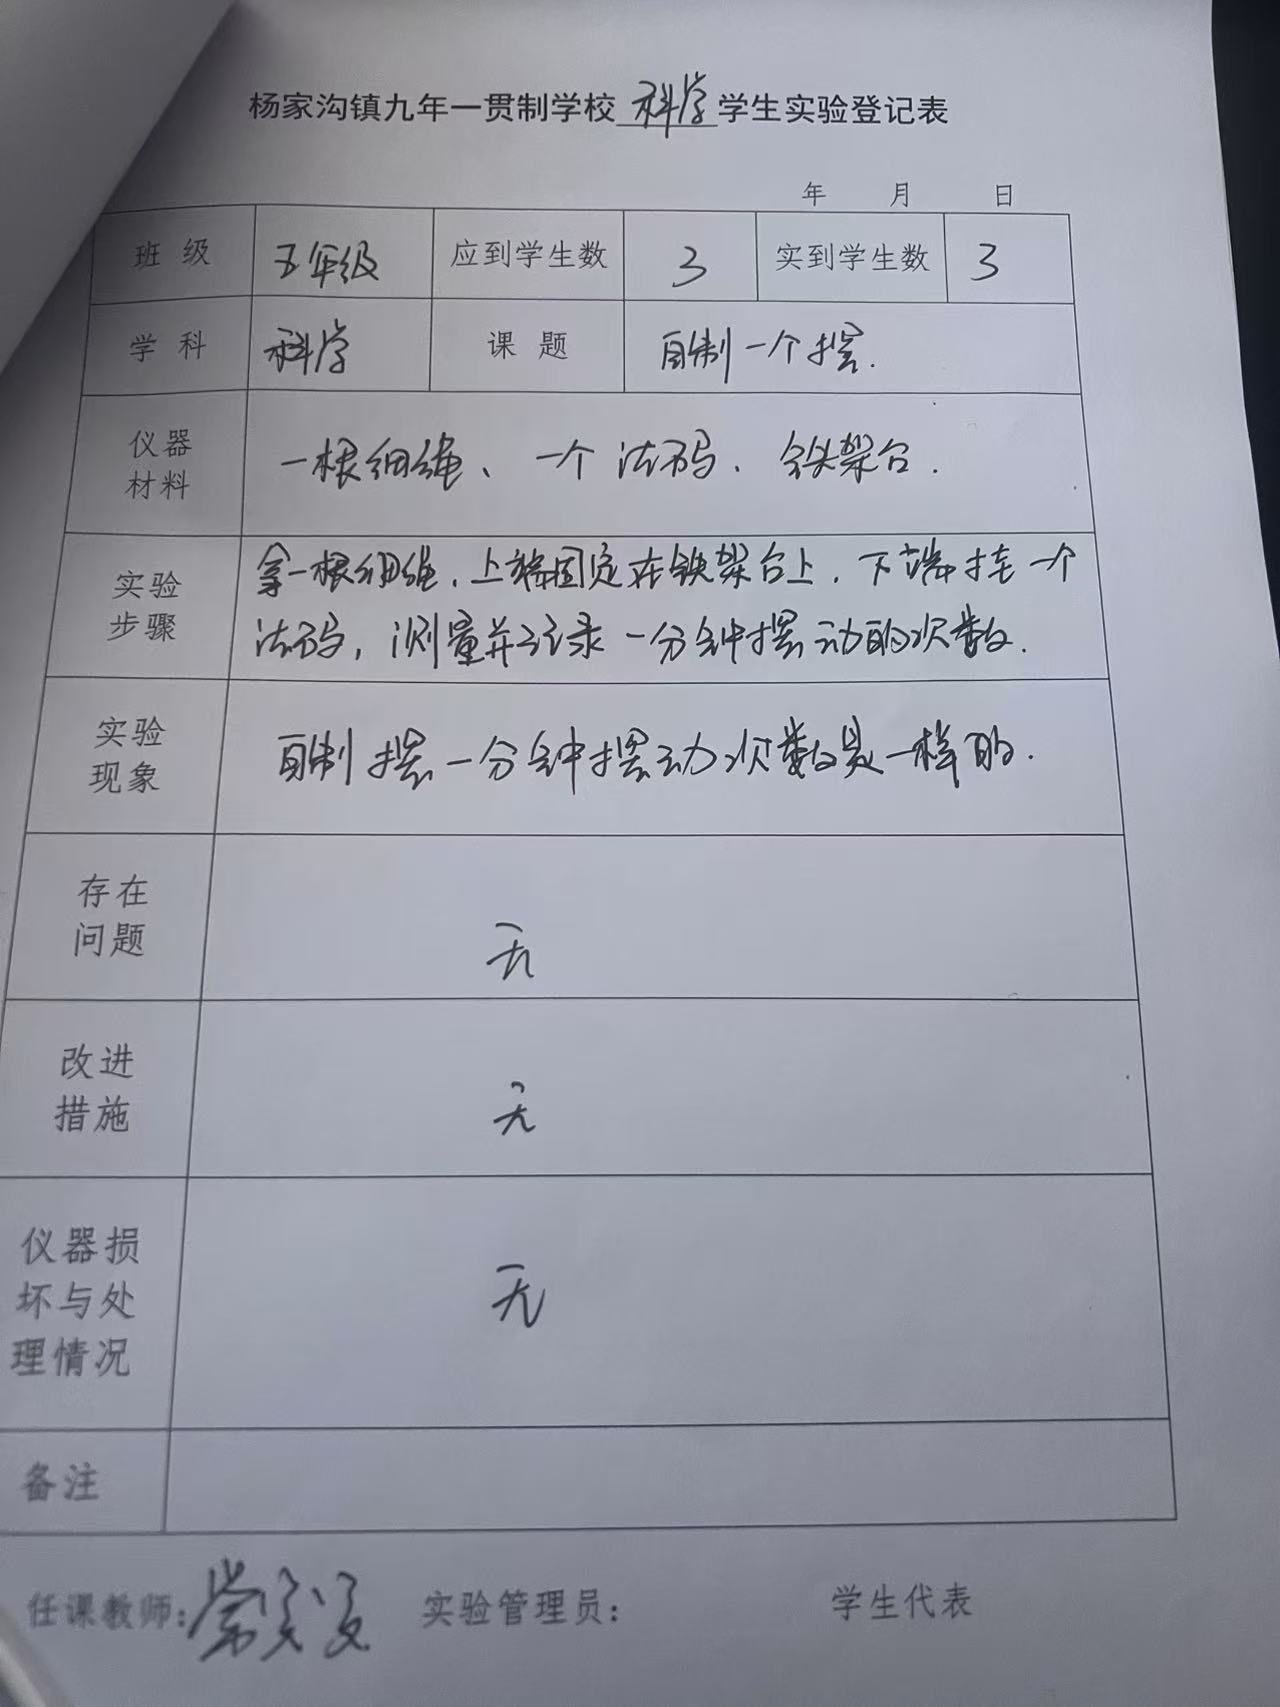 杨家沟镇九年一贯制学校科学学生实验登记表
年 月 日
班级 五年级 应到学生数 3 实到学生数 3
学科 科学 课题 自制一个摆.
仪器
材料
一根细绳、一个法码、铁架台.
实验
步骤
拿一根细绳,上端固定在铁架台上,下端挂一个
法码,测量并记录一分钟摆动的次数.
实验
现象
自制摆一分钟摆动次数是一样的.
存在
问题
无
改进
措施
无
仪器损
坏与处
理情况
无
备注
任课教师: 实验管理员: 学生代表